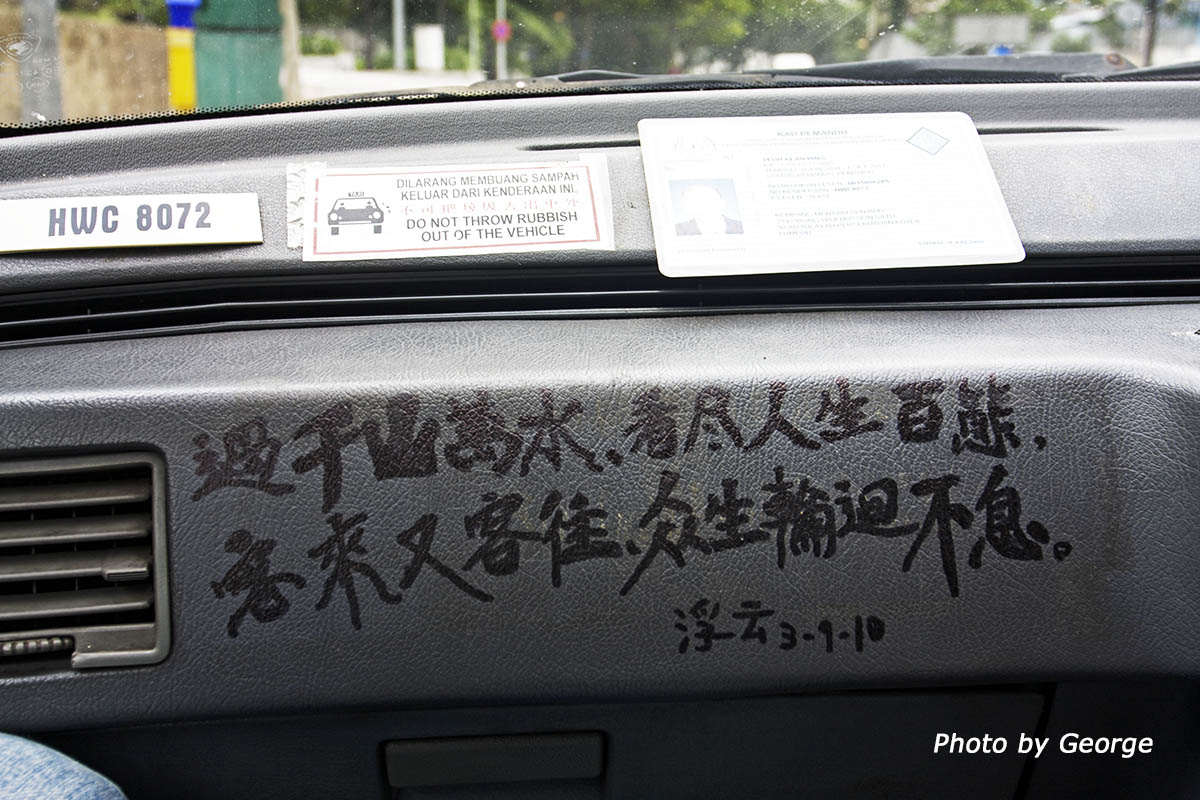 HWC 8072
TAXI
DILARANG MEMBUANG SAMPAH
KELUAR DARI KENDERAAN INI.
不可把垃圾丢出車外
DO NOT THROW RUBBISH
OUT OF THE VEHICLE
KAD PEMANDU
HWC 8072
過千山萬水、看尽人生百態,
客來又客往、众生輪迴不息。
浮云 3-9-10
Photo by George